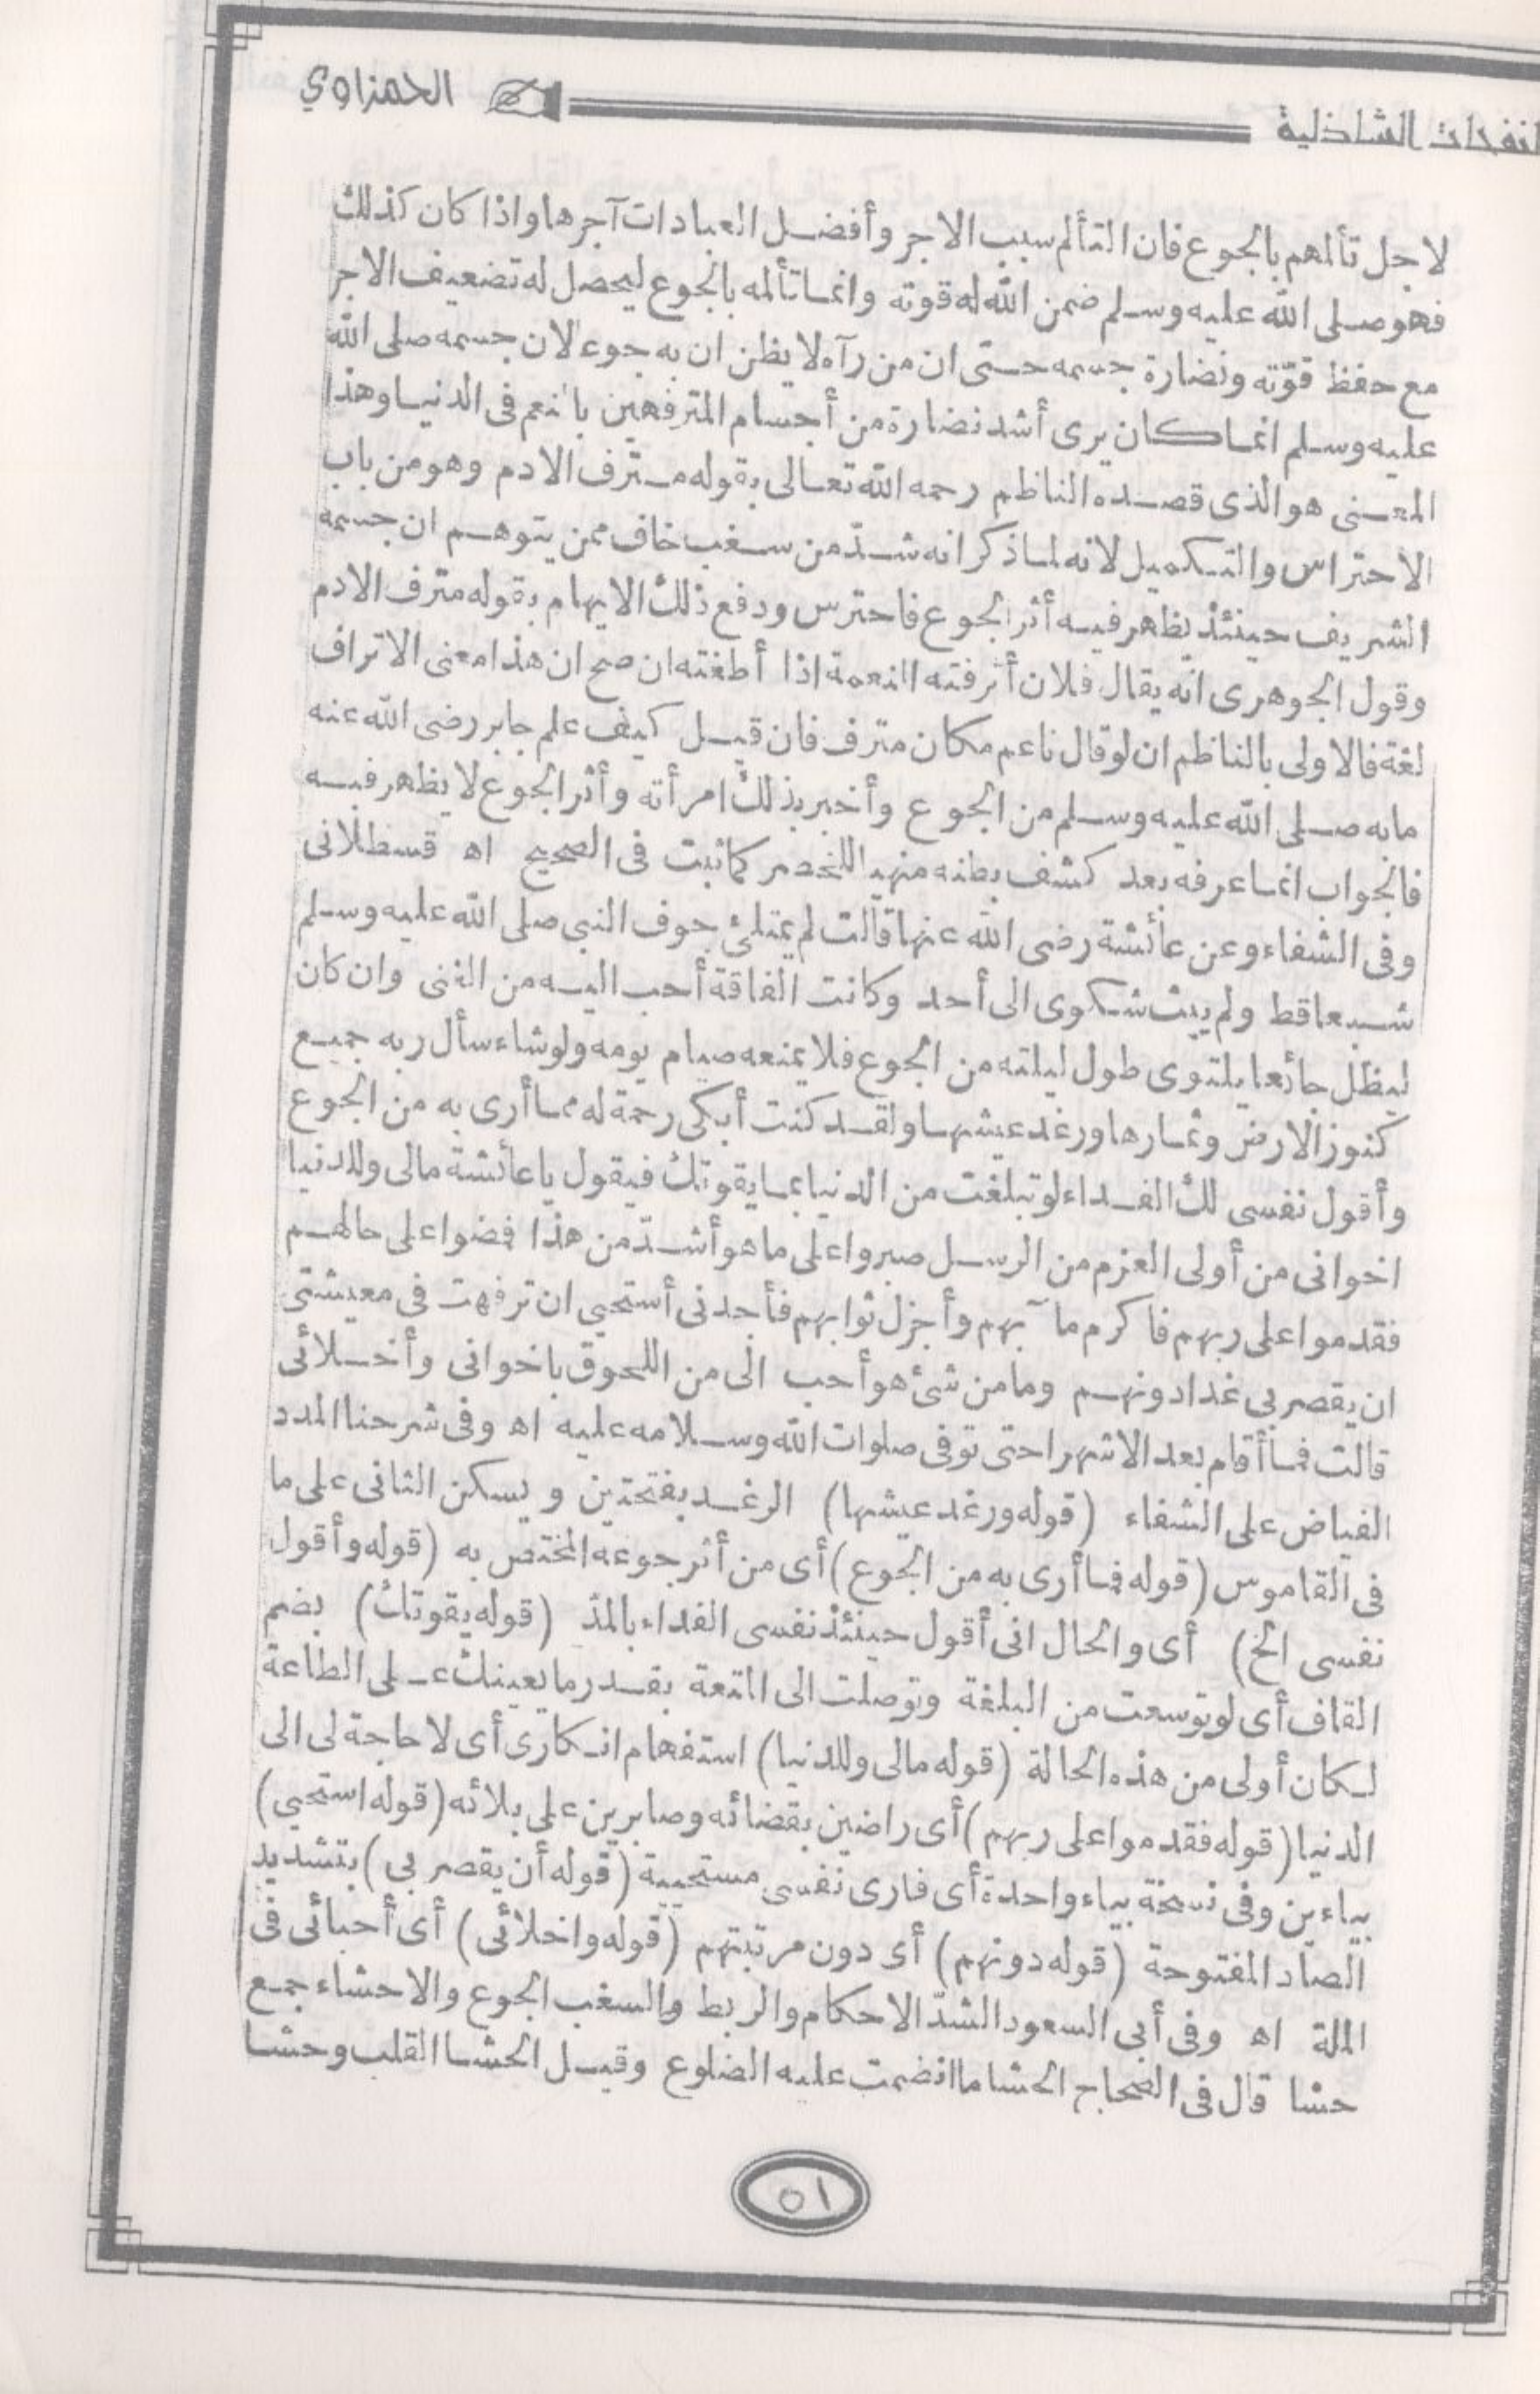 النفحات الشاذلية
الحمزاوي
لاجل تألمهم بالجوع فان التألم سبب الاجر وأفضل العبادات آجرها واذا كان كذلك
فهو صلى الله عليه وسلم ضمن الله له قوته وانما تألمه بالجوع ليحصل له تضعيف الاجر
مع حفظ قوّته ونضارة جسمه حتى ان من رآه لا يظن ان به جوعا لان جسمه صلى الله
عليه وسلم انما كان يرى أشد نضارة من أجسام المترفهين بالنعم فى الدنيا وهذا
المعنى هو الذى قصده الناظم رحمه الله تعالى بقوله مترف الادم وهو من باب
الاحتراس والتكميل لانه لما ذكر انه شدّ من سغب خاف ممن يتوهم ان جسمه
الشريف حينئذ يظهر فيه أثر الجوع فاحترس ودفع ذلك الايهام بقوله مترف الادم
وقول الجوهرى انّه يقال فلان أترفته النعمة اذا أطغته ان صح ان هذا معنى الاتراف
لغة فالاولى بالناظم ان لو قال ناعم مكان مترف فان قيل كيف علم جابر رضى الله عنه
ما به صلى الله عليه وسلم من الجوع وأخبر بذلك امرأته وأثر الجوع لا يظهر فيه
فالجواب انما عرفه بعد كشف بطنه منهبا للخصر كما ثبت فى الصحيح اه قسطلانى
وفى الشفاء وعن عائشة رضى الله عنها قالت لم يمتلئ جوف النبى صلى الله عليه وسلم
شبعا قط ولم يبث شكوى الى أحد وكانت الفاقة أحب اليه من الغنى وان كان
ليظل جائعا يلتوى طول ليلته من الجوع فلا يمنعه صيام يومه ولو شاء سأل ربه جميع
كنوز الارض وثمارها ورغد عيشها ولقد كنت أبكى رحمة له مما أرى به من الجوع
وأقول نفسى لك الفداء لو تبلغت من الدنيا بما يقوتك فيقول يا عائشة مالى وللدنيا
اخوانى من أولى العزم من الرسل صبروا على ما هو أشدّ من هذا فمضوا على حالهم
فقدموا على ربهم فاكرم مآبهم وأجزل ثوابهم فأجدنى أستحيي ان ترفهت فى معيشتى
ان يقصر بى غدا دونهم وما من شئ هو أحب الى من اللحوق باخوانى وأخلائى
قالت فما أقام بعد الا شهرا حتى توفى صلوات الله وسلامه عليه اه وفى شرحنا المدد
الفياض على الشفاء (قوله ورغد عيشها) الرغد بفتحتين ويسكن الثانى على ما
فى القاموس (قوله مما أرى به من الجوع) أى من أثر جوعه المختص به (قوله وأقول
نفسى الخ) أى والحال انى أقول حينئذ نفسى الفداء بالمدّ (قوله يقوتك) بضم
القاف أى لو توسعت من البلغة وتوصلت الى المتعة بقدر ما يعينك على الطاعة
لكان أولى من هذه الحالة (قوله مالى وللدنيا) استفهام انكارى أى لا حاجة لى الى
الدنيا (قوله فقدموا على ربهم) أى راضين بقضائه وصابرين على بلائه (قوله استحيي)
بياءين وفى نسخة بياء واحدة أى فارى نفسى مستحيية (قوله أن يقصر بى) بتشديد
الصاد المفتوحة (قوله دونهم) أى دون مرتبتهم (قوله واخلائى) أى أحبائى فى
الملة اه وفى أبى السعود الشدّ الاحكام والربط والسغب الجوع والاحشاء جمع
حشا قال فى الصحاح الحشا ما انضمت عليه الضلوع وقيل الحشا القلب وحشا
٥١